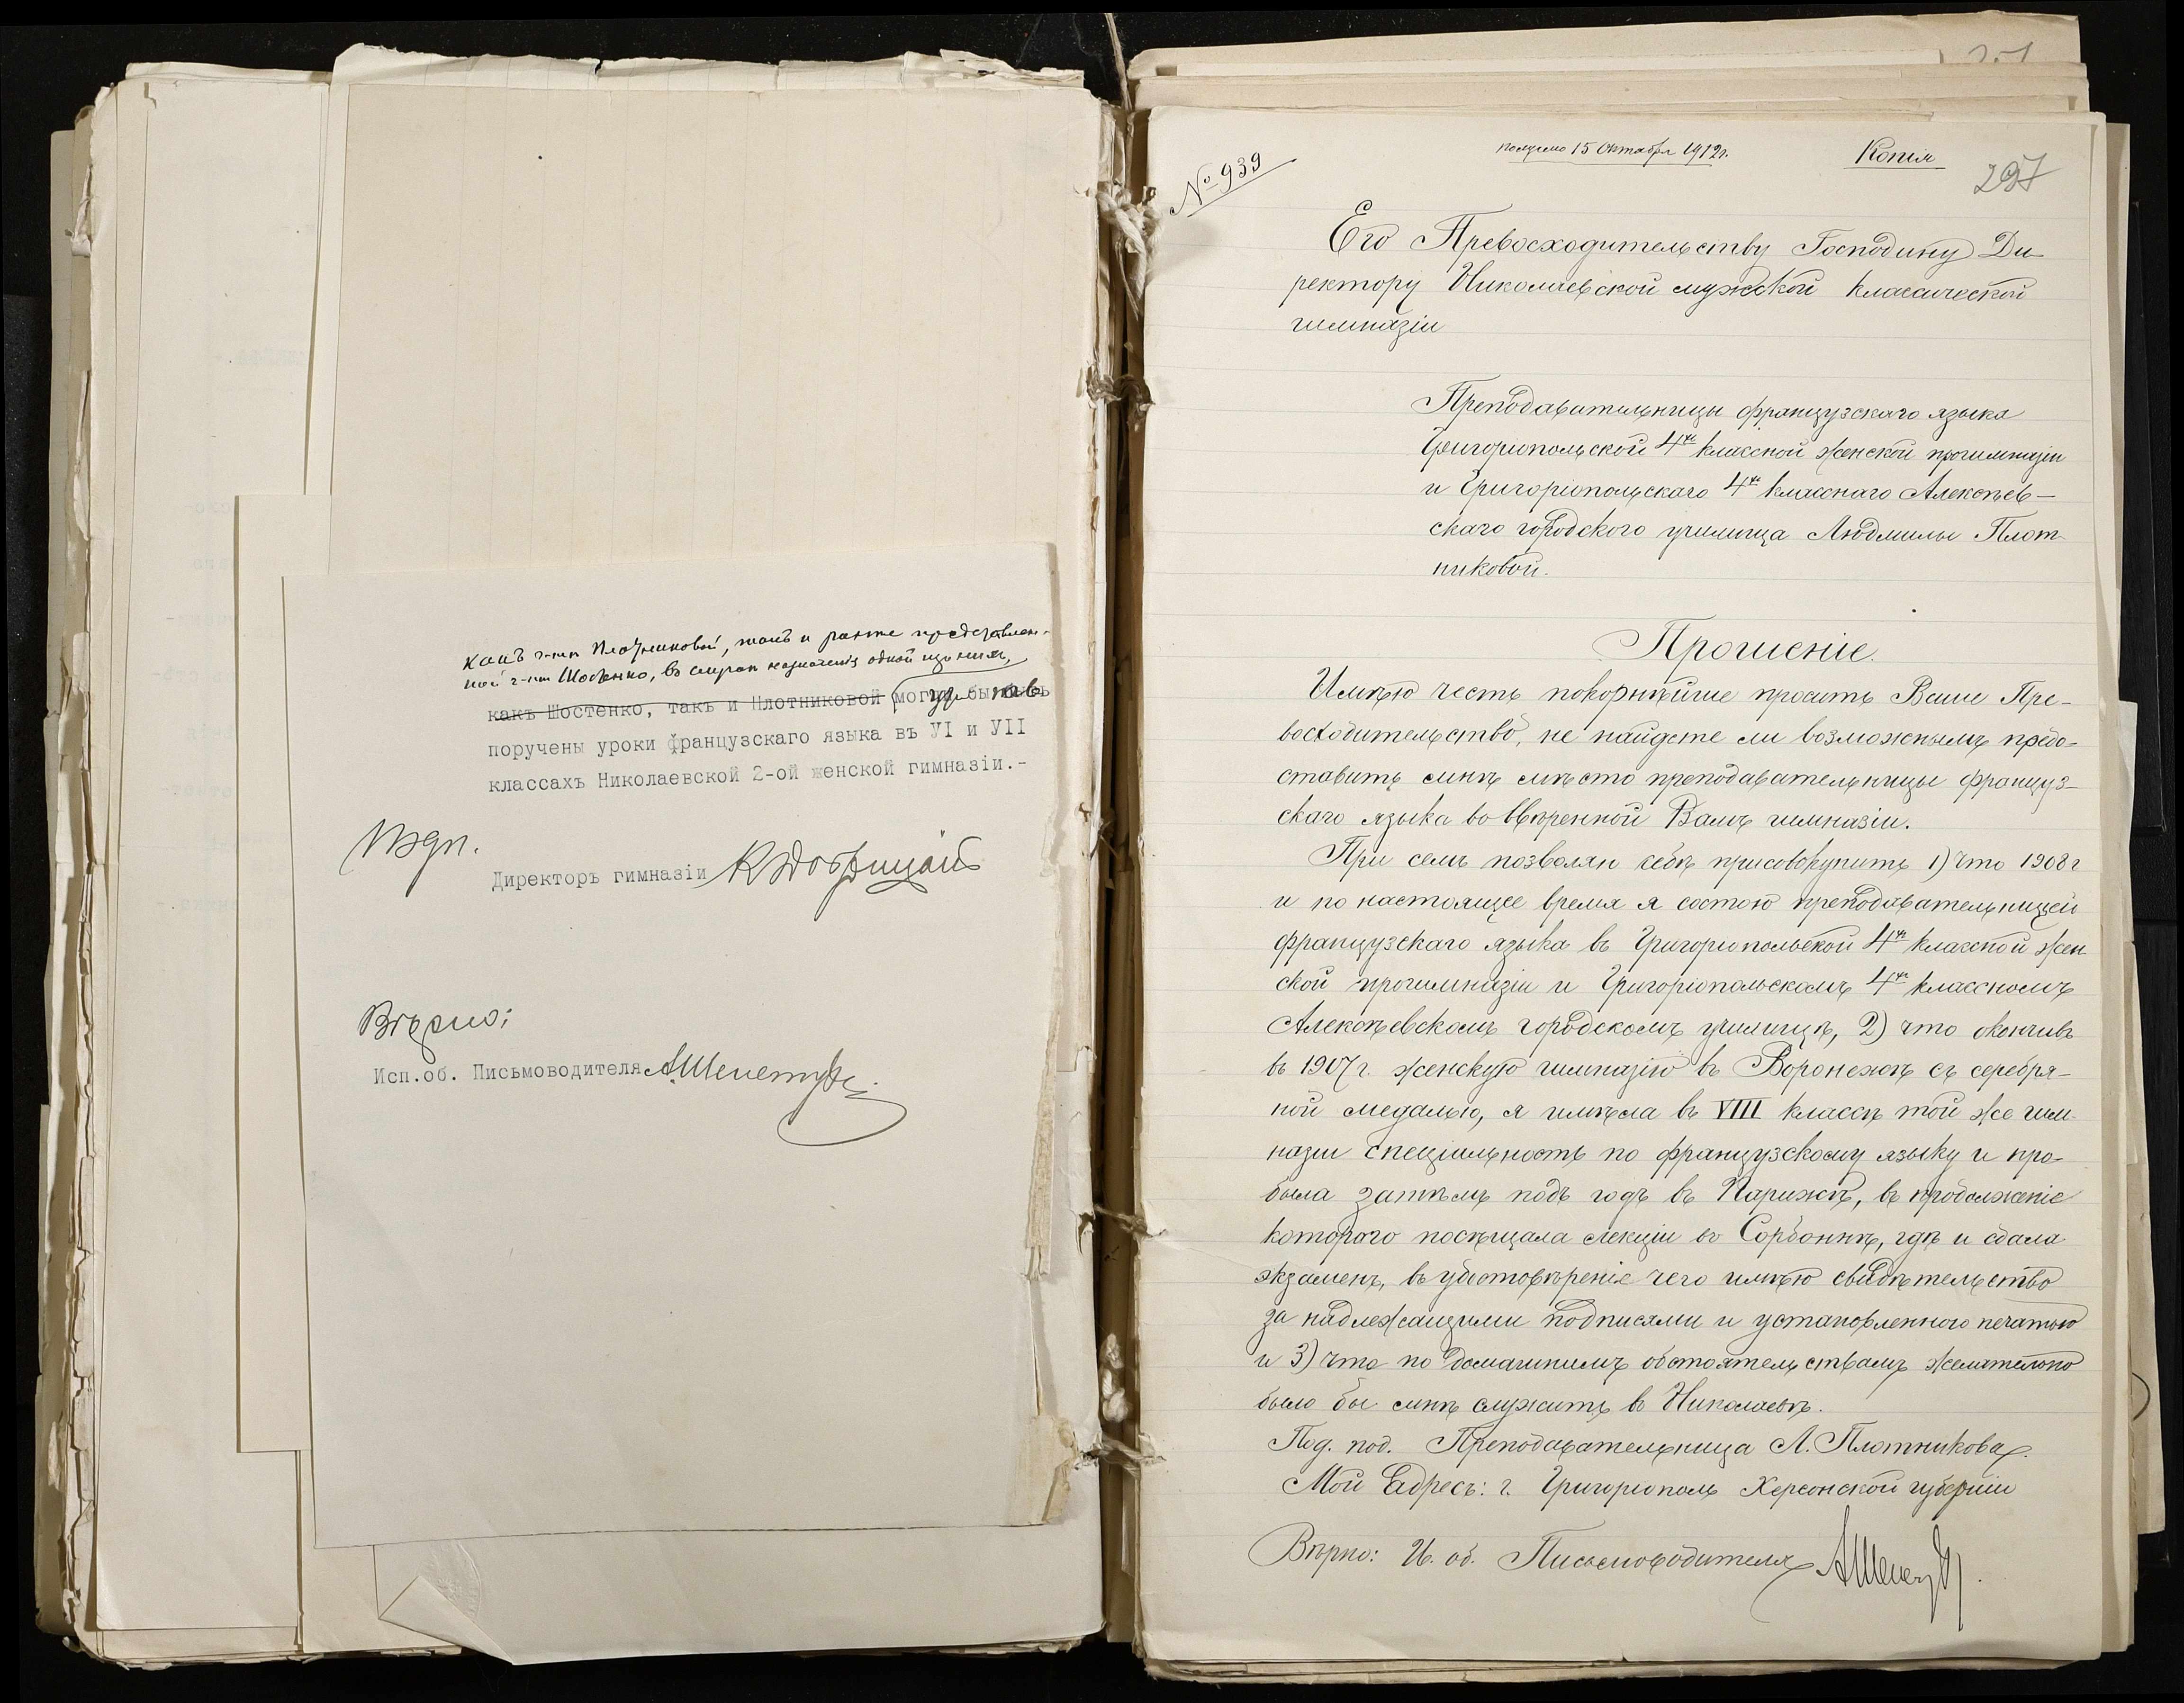 какъ г-жѣ Плотниковой, такъ и ранѣе представлен-
ной г-жѣ Шостенко, въ случаѣ назначенія одной изъ нихъ,
какъ Шостенко, такъ и Плотниковой могутъ быть
поручены уроки французскаго языка въ VI и VII
классахъ Николаевской 2-ой женской гимназіи.-
Директоръ гимназіи
Вѣрно:
Исп.об. Письмоводителя
№ 939
получено 15 Октября 1912г.
Копія
297
Его Превосходительству Господину Ди-
ректору Николаевской мужской классической
гимназіи
Преподавательницы французскаго языка
Григоріопольской 4хъ классной женской прогимназіи
и Григоріопольскаго 4хъ класснаго Алексѣев-
скаго городского училища Людмилы Плот-
никовой.
Прошеніе.
Имѣю честь покорнѣйше просить Ваше Пре-
восходительство, не найдете ли возможнымъ предо-
ставить мнѣ мѣсто преподавательницы француз-
скаго языка во ввѣренной Вамъ гимназіи.
При семъ позволяю себѣ присовокупить 1) что 1908 г
и по настоящее время я состою преподавательницей
французскаго языка въ Григоріопольской 4хъ классной жен-
ской прогимназіи и Григоріопольскомъ 4хъ классномъ
Алексѣевскомъ городскомъ училищѣ, 2) что окончивъ
въ 1907 г. женскую гимназію въ Воронежѣ съ серебря-
ной медалью, я имѣла въ VIII классѣ той же гим-
назіи спеціальность по французскому языку и про-
была затѣмъ годъ въ Парижѣ, въ продолженіе
котораго посѣщала лекціи въ Сорбоннѣ, гдѣ и сдала
экзаменъ, въ удостовѣреніе чего имѣю свидѣтельство
за надлежащими подписями и установленного печатью
и 3) что по домашнимъ обстоятельствамъ желательно
было бы мнѣ служить въ Николаевѣ.
Под. под. Преподавательница Л. Плотникова.
Мой адресъ: г. Григоріополь Херсонской губерніи
Вѣрно: И. об. Письмоводителя